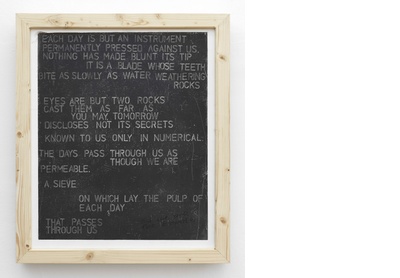 EACH DAY IS BUT AN INSTRUMENT
PERMANENTLY PRESSED AGAINST US.
NOTHING HAS MADE BLUNT ITS TIP
IT IS A BLADE WHOSE TEETH
BITE AS SLOWLY AS WATER WEATHERING
ROCKS
EYES ARE BUT TWO ROCKS
CAST THEM AS FAR AS
YOU MAY TOMORROW
DISCLOSES NOT ITS SECRETS
KNOWN TO US ONLY IN NUMERICAL
THE DAYS PASS THROUGH US AS
THOUGH WE ARE
PERMEABLE.
A SIEVE
ON WHICH LAY THE PULP OF
EACH DAY
THAT PASSES
THROUGH US